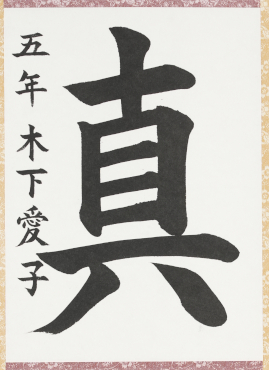 真
五年 木下愛子